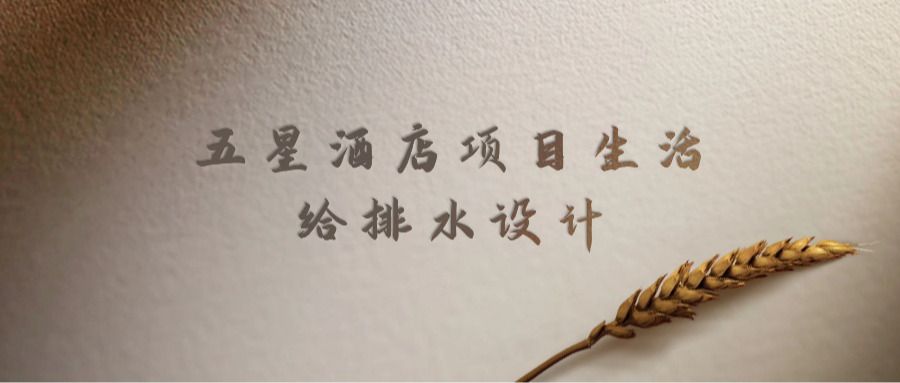 五星酒店项目生活
给排水设计